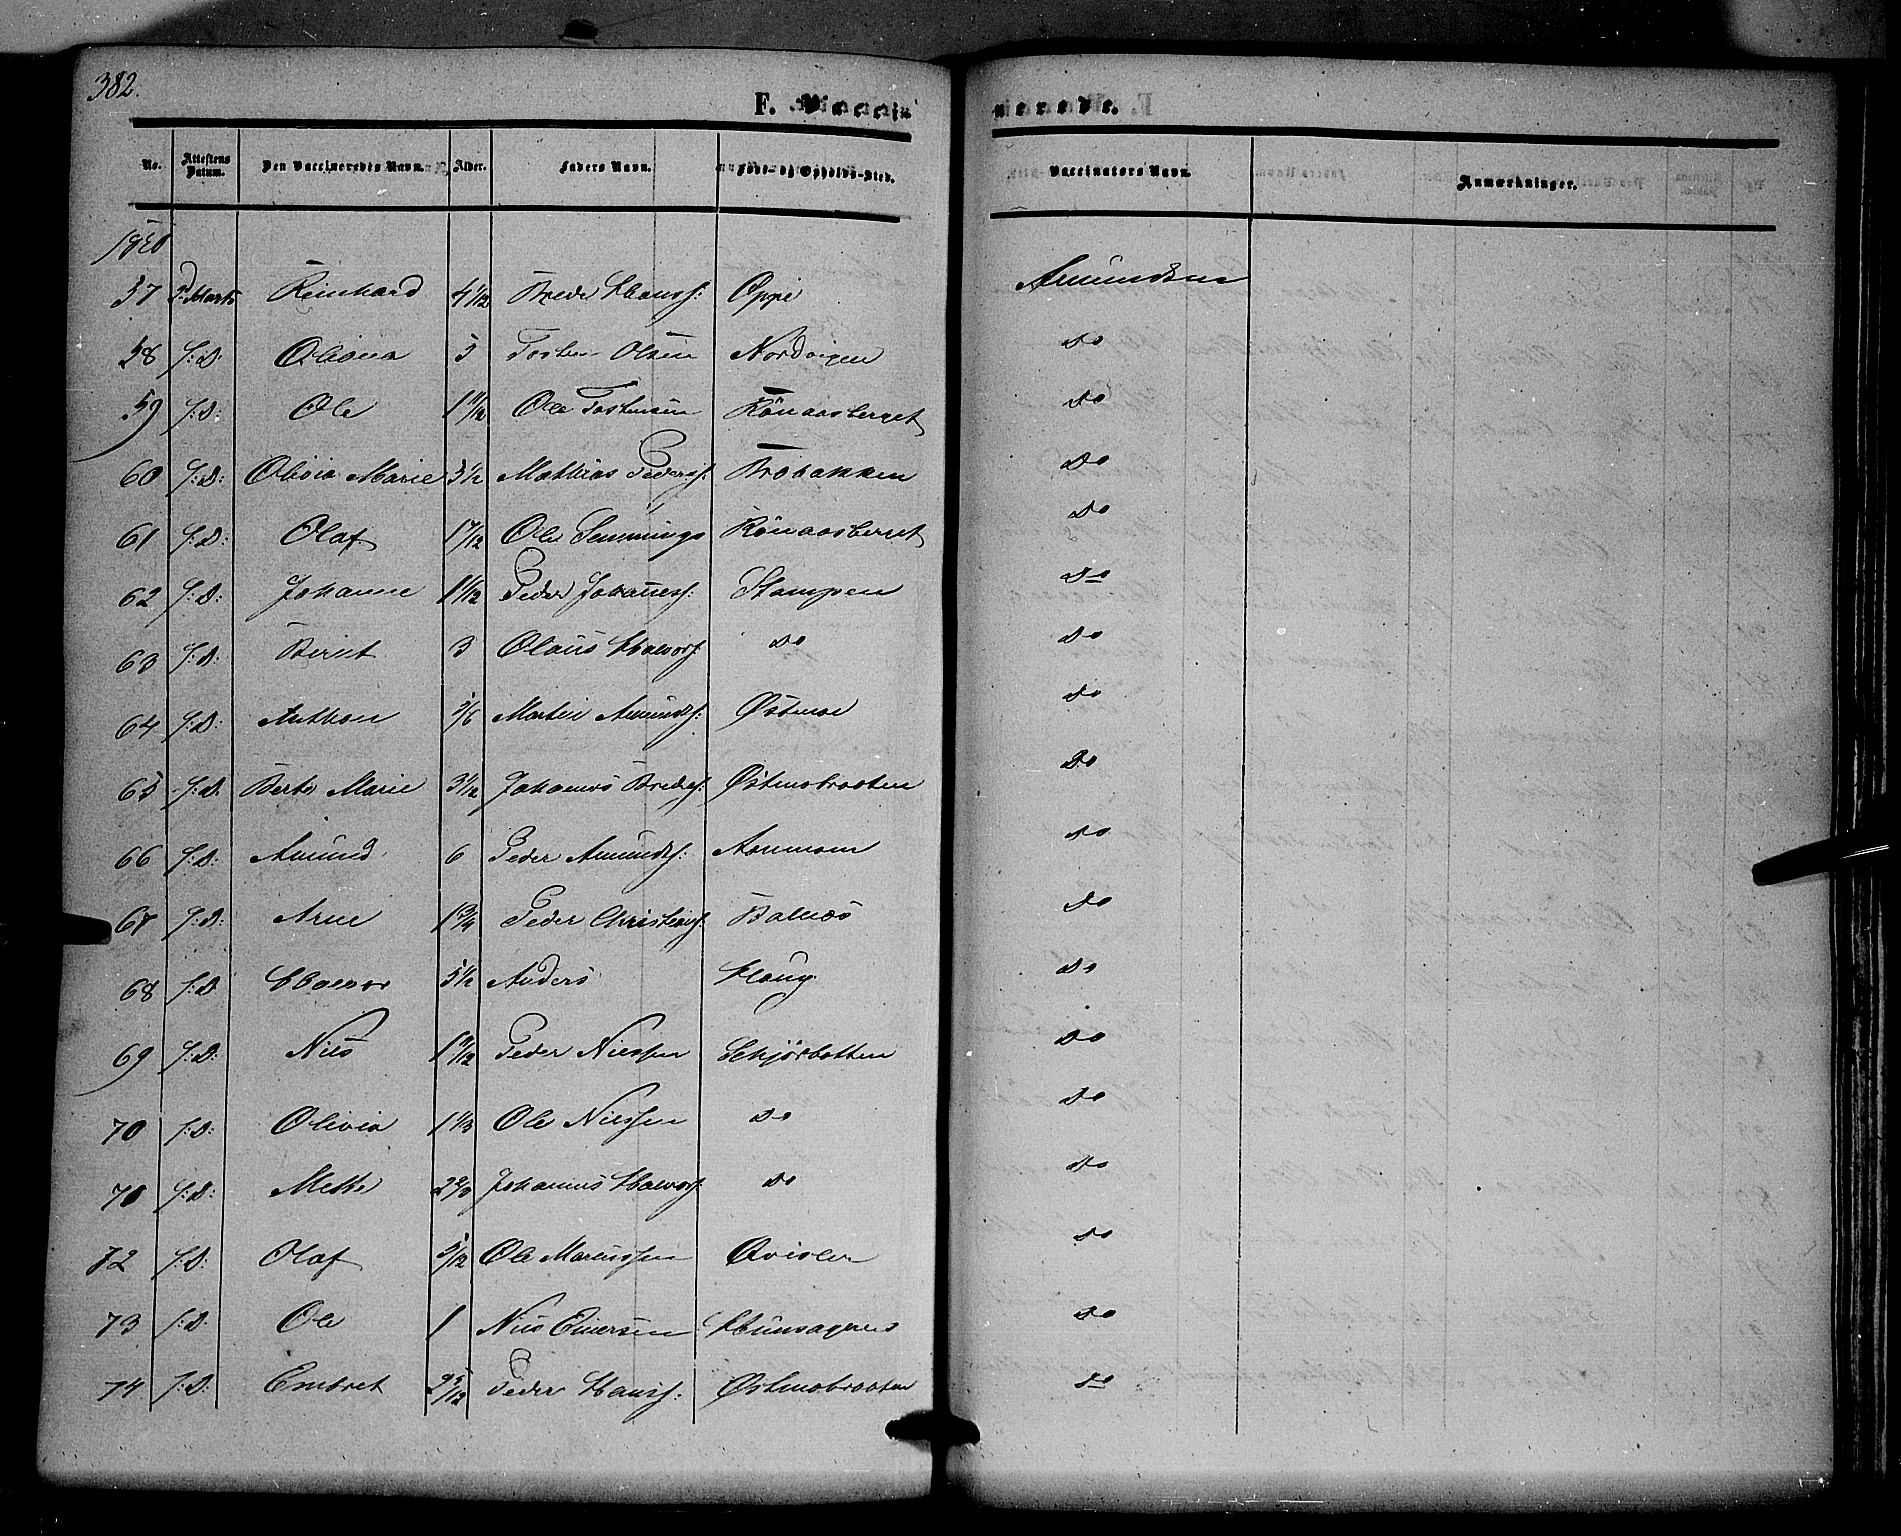 382.
F. Vaccinerede.
No. Attestens Datum. Den Vaccineredes Navn. Alder. Faders Navn. Føde- og Opholds-Sted. Vaccinators Navn. Anmærkninger.
57 Marts Reinhard 4 1/12 Brede Hanss: Oppi Amundsen
58 S:D: Oliana 5 Olsen Nordvigen Do
59 S:D: Ole 1 11/12 Ole Tostensen Rönaasberget Do
60 S:D: Olivia Marie 3 1/2 Mathias Pederss: Brobakken Do
61 S:D: Olaf 1 7/12 Ole Semmings Rönaasberget Do
62 S:D: Johanne 1 1/12 Peder Johaness: Stampen Do
63 S:D: Beret 3 Olaus Halvors: Do Do
64 S:D: Anthon 5/6 Martin Amunds: Østmoe Do
65 S:D. Berte Marie 3 1/12 Johannes Bredes: Østmobraaten Do
66 S:D: Amund 6 Peder Amunds: Aanmoen Do
67 S:D: Arne 1 3/4 Peder Christians: Balnæs Do
68 S:D Halvor 5 1/2 Anders Haug Do
69 S:D: Nils 1 11/12 Peder Nielssen Schjørbotten Do
70 S:D: Olivia 1 1/3 Ole Nielssen Do Do
70 S:D: Mette 2 2/3 Johannes Halvors: Do Do
72 S:D: Olaf 5/12 Ole Mariussen Qvislen Do
73 S:D: Ole 1 Nils Einersen Do
74 S:D: Embret 2 5/12 Peder Hanss: Østmobraaten Do